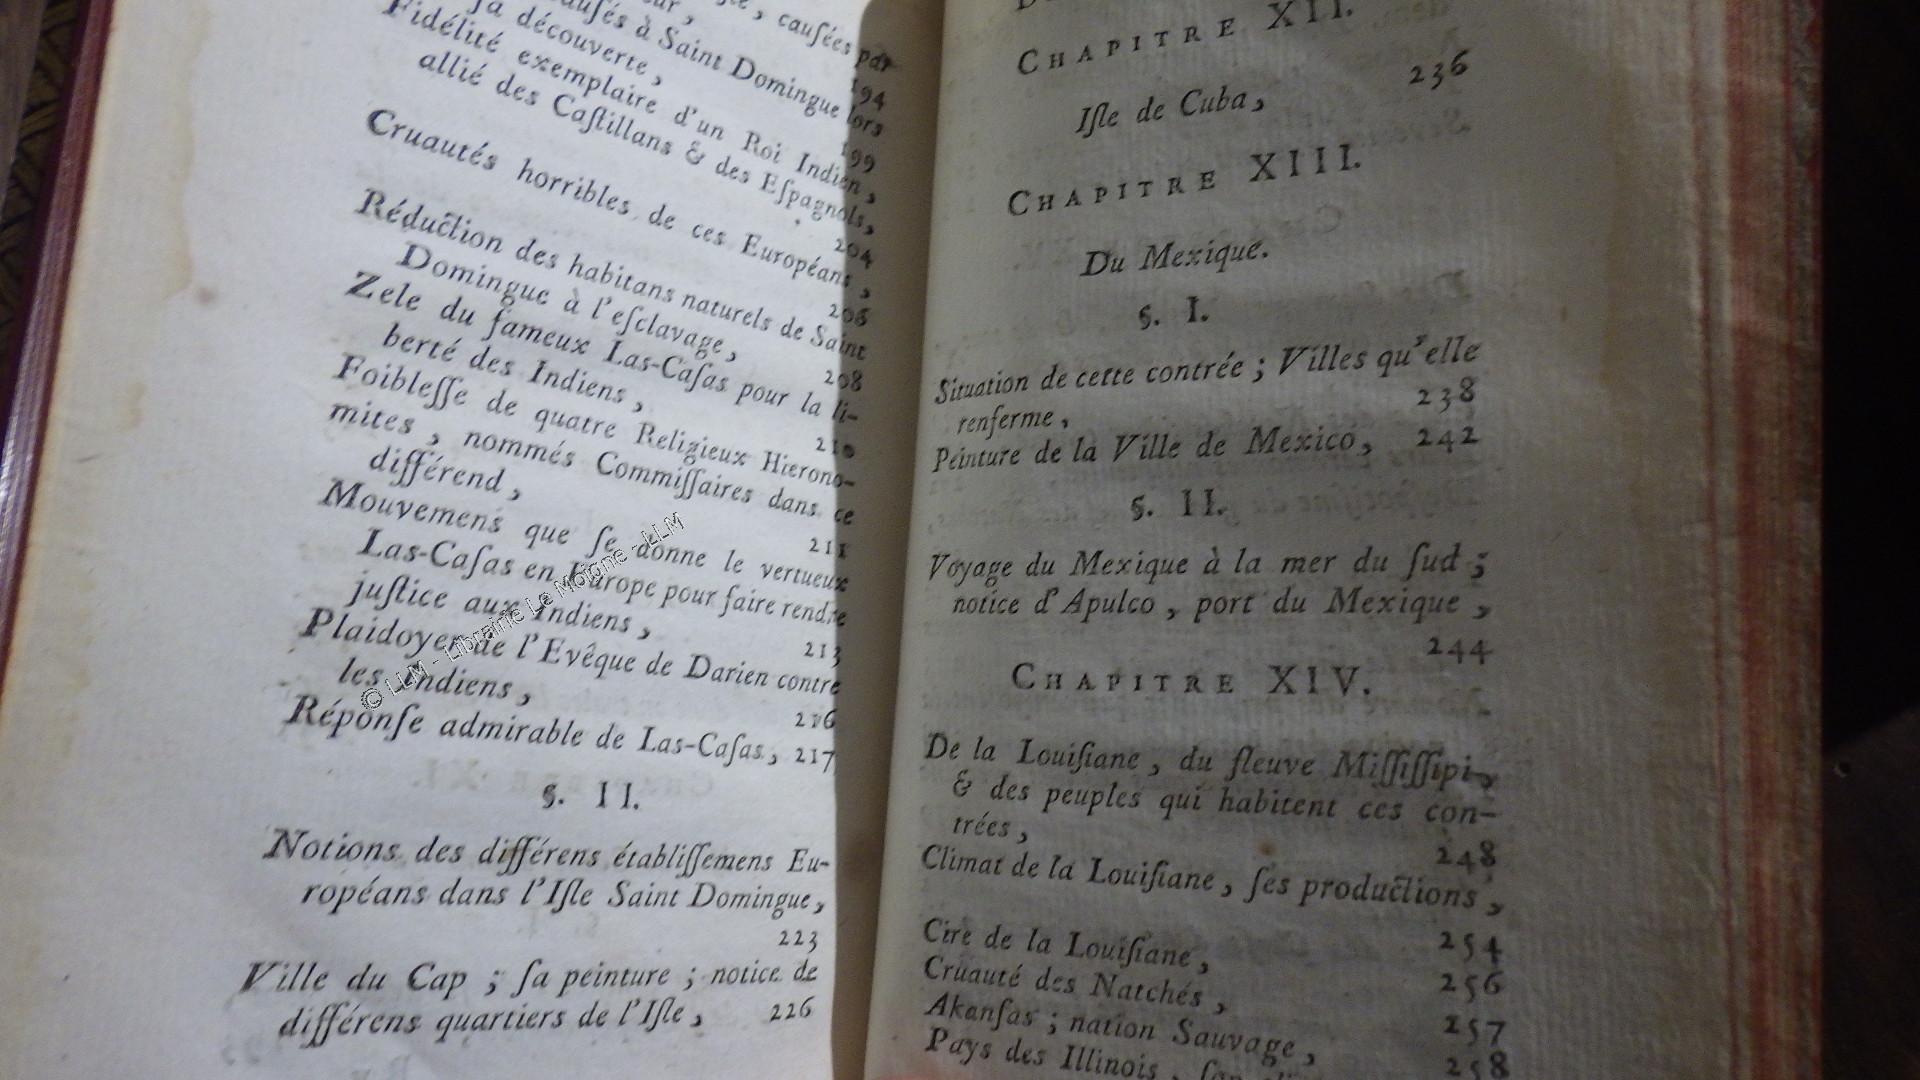 causées par
194
causés à Saint Domingue lors
sa découverte,
199
Fidélité exemplaire d'un Roi Indien,
allié des Castillans & des Espagnols,
204
Cruautés horribles de ces Européans,
206
Réduction des habitans naturels de Saint
Domingue à l'esclavage,
208
Zele du fameux Las-Casas pour la li-
berté des Indiens,
210
Foiblesse de quatre Religieux Hierono-
mites, nommés Commissaires dans ce
différend,
211
Mouvemens que se donne le vertueux
Las-Casas en Europe pour faire rendre
justice aux Indiens,
213
Plaidoyer de l'Evêque de Darien contre
les Indiens,
216
Réponse admirable de Las-Casas, 217
§. II.
Notions des différens établissemens Eu-
ropéans dans l'Isle Saint Domingue,
223
Ville du Cap ; sa peinture ; notice de
différens quartiers de l'Isle, 226
CHAPITRE XII.
Isle de Cuba, 236
CHAPITRE XIII.
Du Mexique.
§. I.
Situation de cette contrée ; Villes qu'elle
renferme, 238
Peinture de la Ville de Mexico, 242
§. II.
Voyage du Mexique à la mer du sud ;
notice d'Apulco, port du Mexique,
244
CHAPITRE XIV.
De la Louisiane, du fleuve Mississipi,
& des peuples qui habitent ces con-
trées, 248
Climat de la Louisiane, ses productions,
254
Cire de la Louisiane, 256
Cruauté des Natchés, 257
Akansas ; nation Sauvage, 258
Pays des Illinois,
© LLM - Librairie Le Moigne - LLM